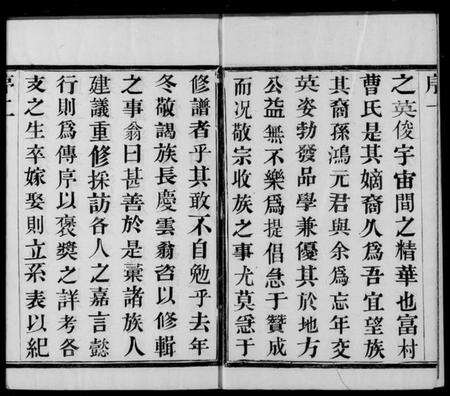 序一
之英俊宇宙間之精華也富村
曹氏是其嫡裔久為吾宜望族
其裔孫鴻元君與余為忘年交
英姿勃發品學兼優其於地方
公益無不樂為提倡急于贊成
而况敬宗收族之事尤莫急于
修譜者乎其敢不自勉乎去年
冬敬謁族長慶雲翁咨以修輯
之事翁曰甚善於是稟諸族人
建議重修採訪各人之嘉言懿
行則為傳序以褒奬之詳考各
支之生卒嫁娶則立系表以紀
序二